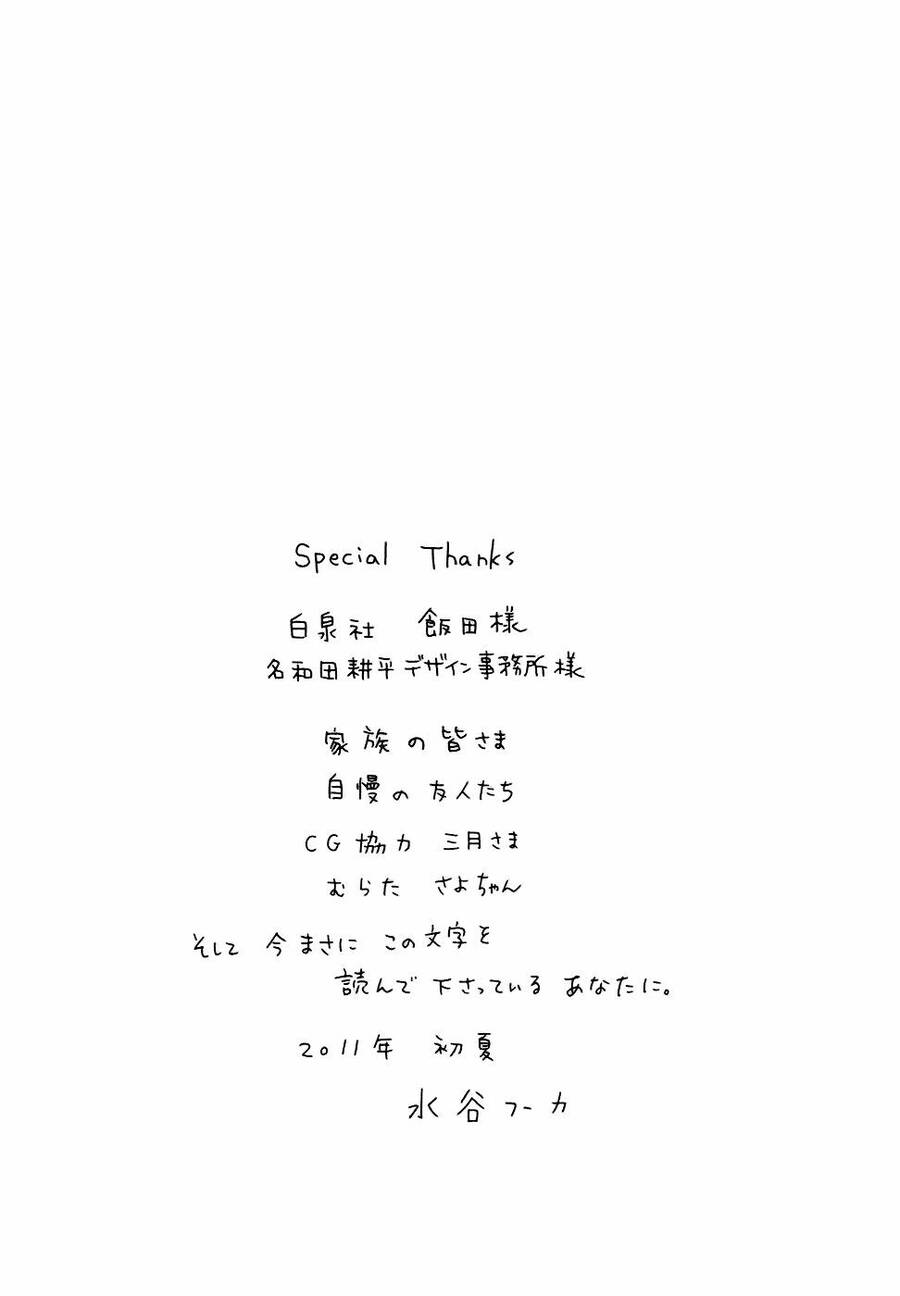 Special Thanks
白泉社 飯田様
名和田耕平デザイン事務所様
家族の皆さま
自慢の友人たち
CG協力 三月さま
むらた さよちゃん
そして 今まさに この文字を
読んで下さっている あなたに。
2011年 初夏
水谷フーカ